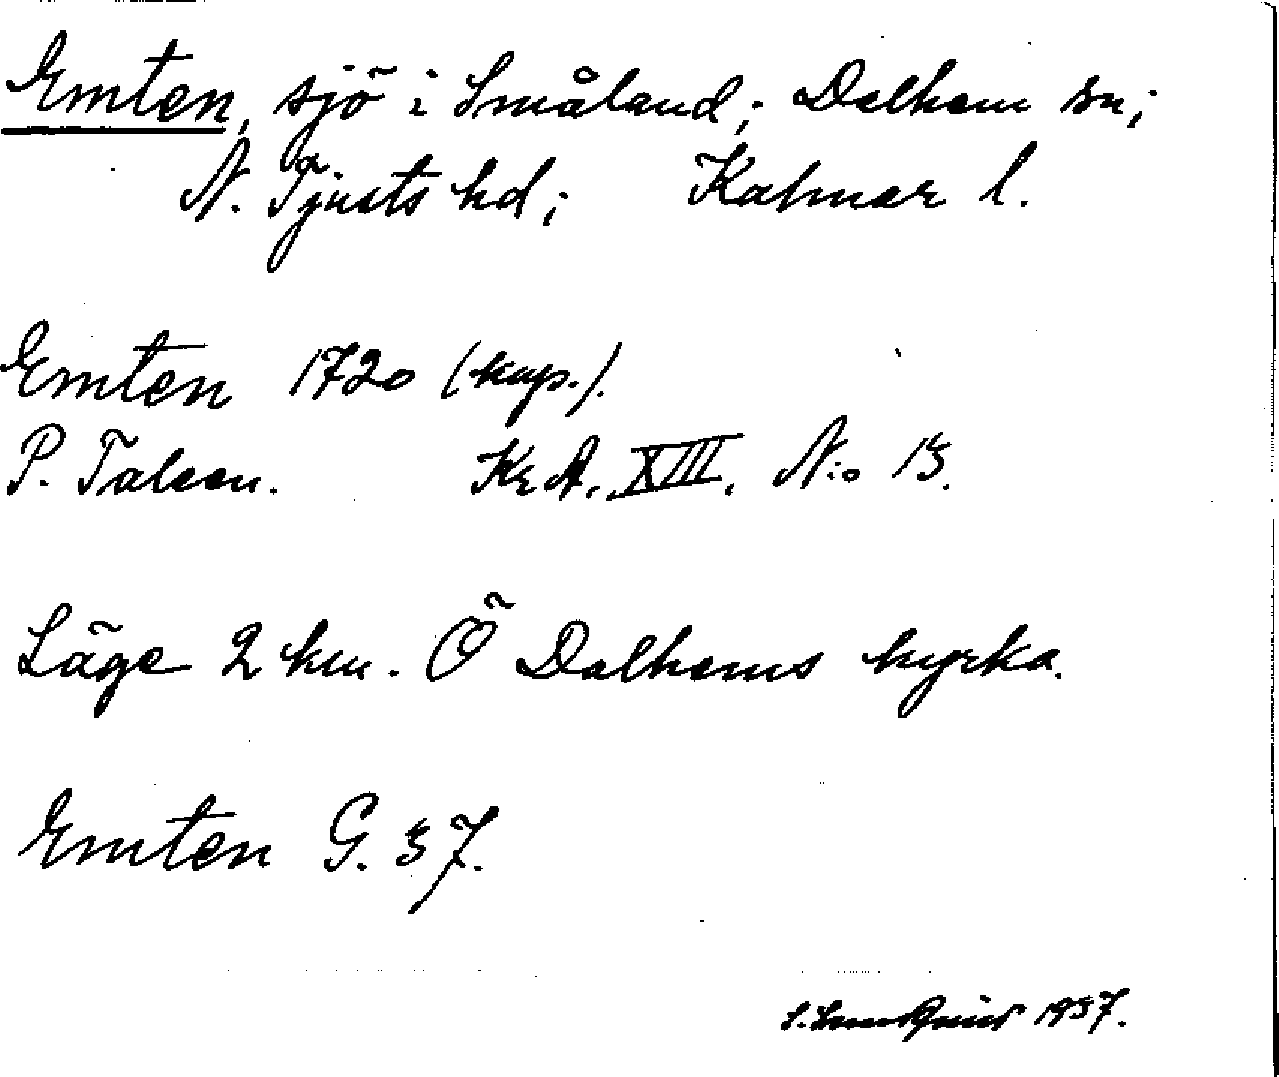 Emten, sjö i Småland; Dalhem sn;
N. Tjusts hd; Kalmar l.
Emten 1720 (kop.).
P. Taleen. KrA. XIII. N:o 13.
Läge 2 km. Ö Dalhems kyrka.
Emten G. 37.
1937.